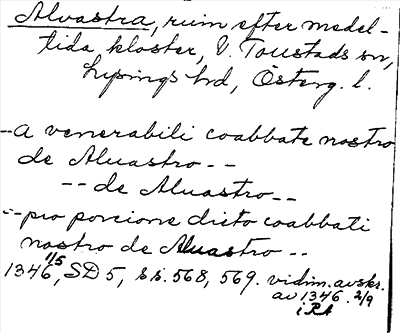 Alvastra, ruin efter medel-
tida kloster, V. Toustads sn,
Lysings hd, Österg. l.
--a venerabili coabbate nostro
de Aluastro--
--de Aluastro--
--pro porcione dicto coabbati
nostro de Aluastro--
1346 1/5, SD 5, ss. 568, 569. vidim. avskr.
av 1346 2/9
i RA